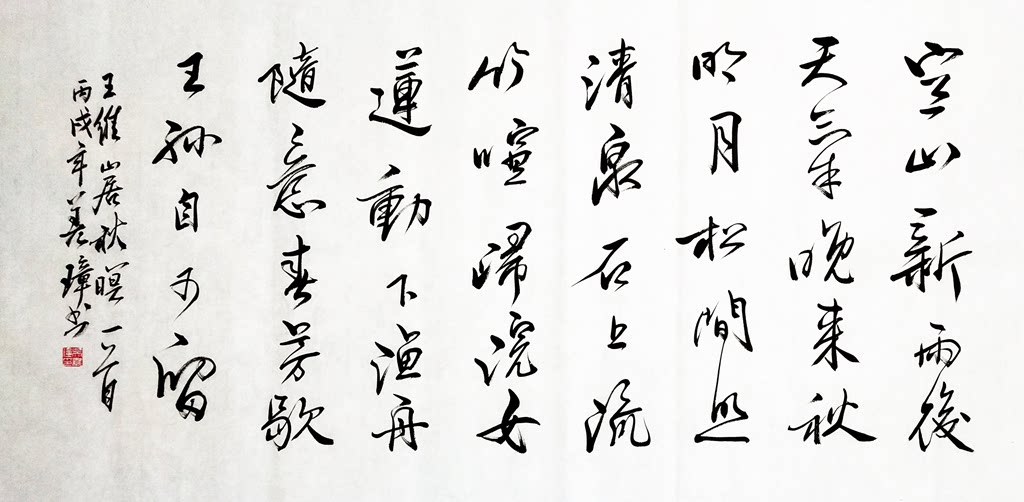 空山新雨後
天氣晚來秋
明月松間照
清泉石上流
竹喧歸浣女
蓮動下漁舟
隨意春芳歇
王孫自可留
王維山居秋暝一首
丙戌年義璋书